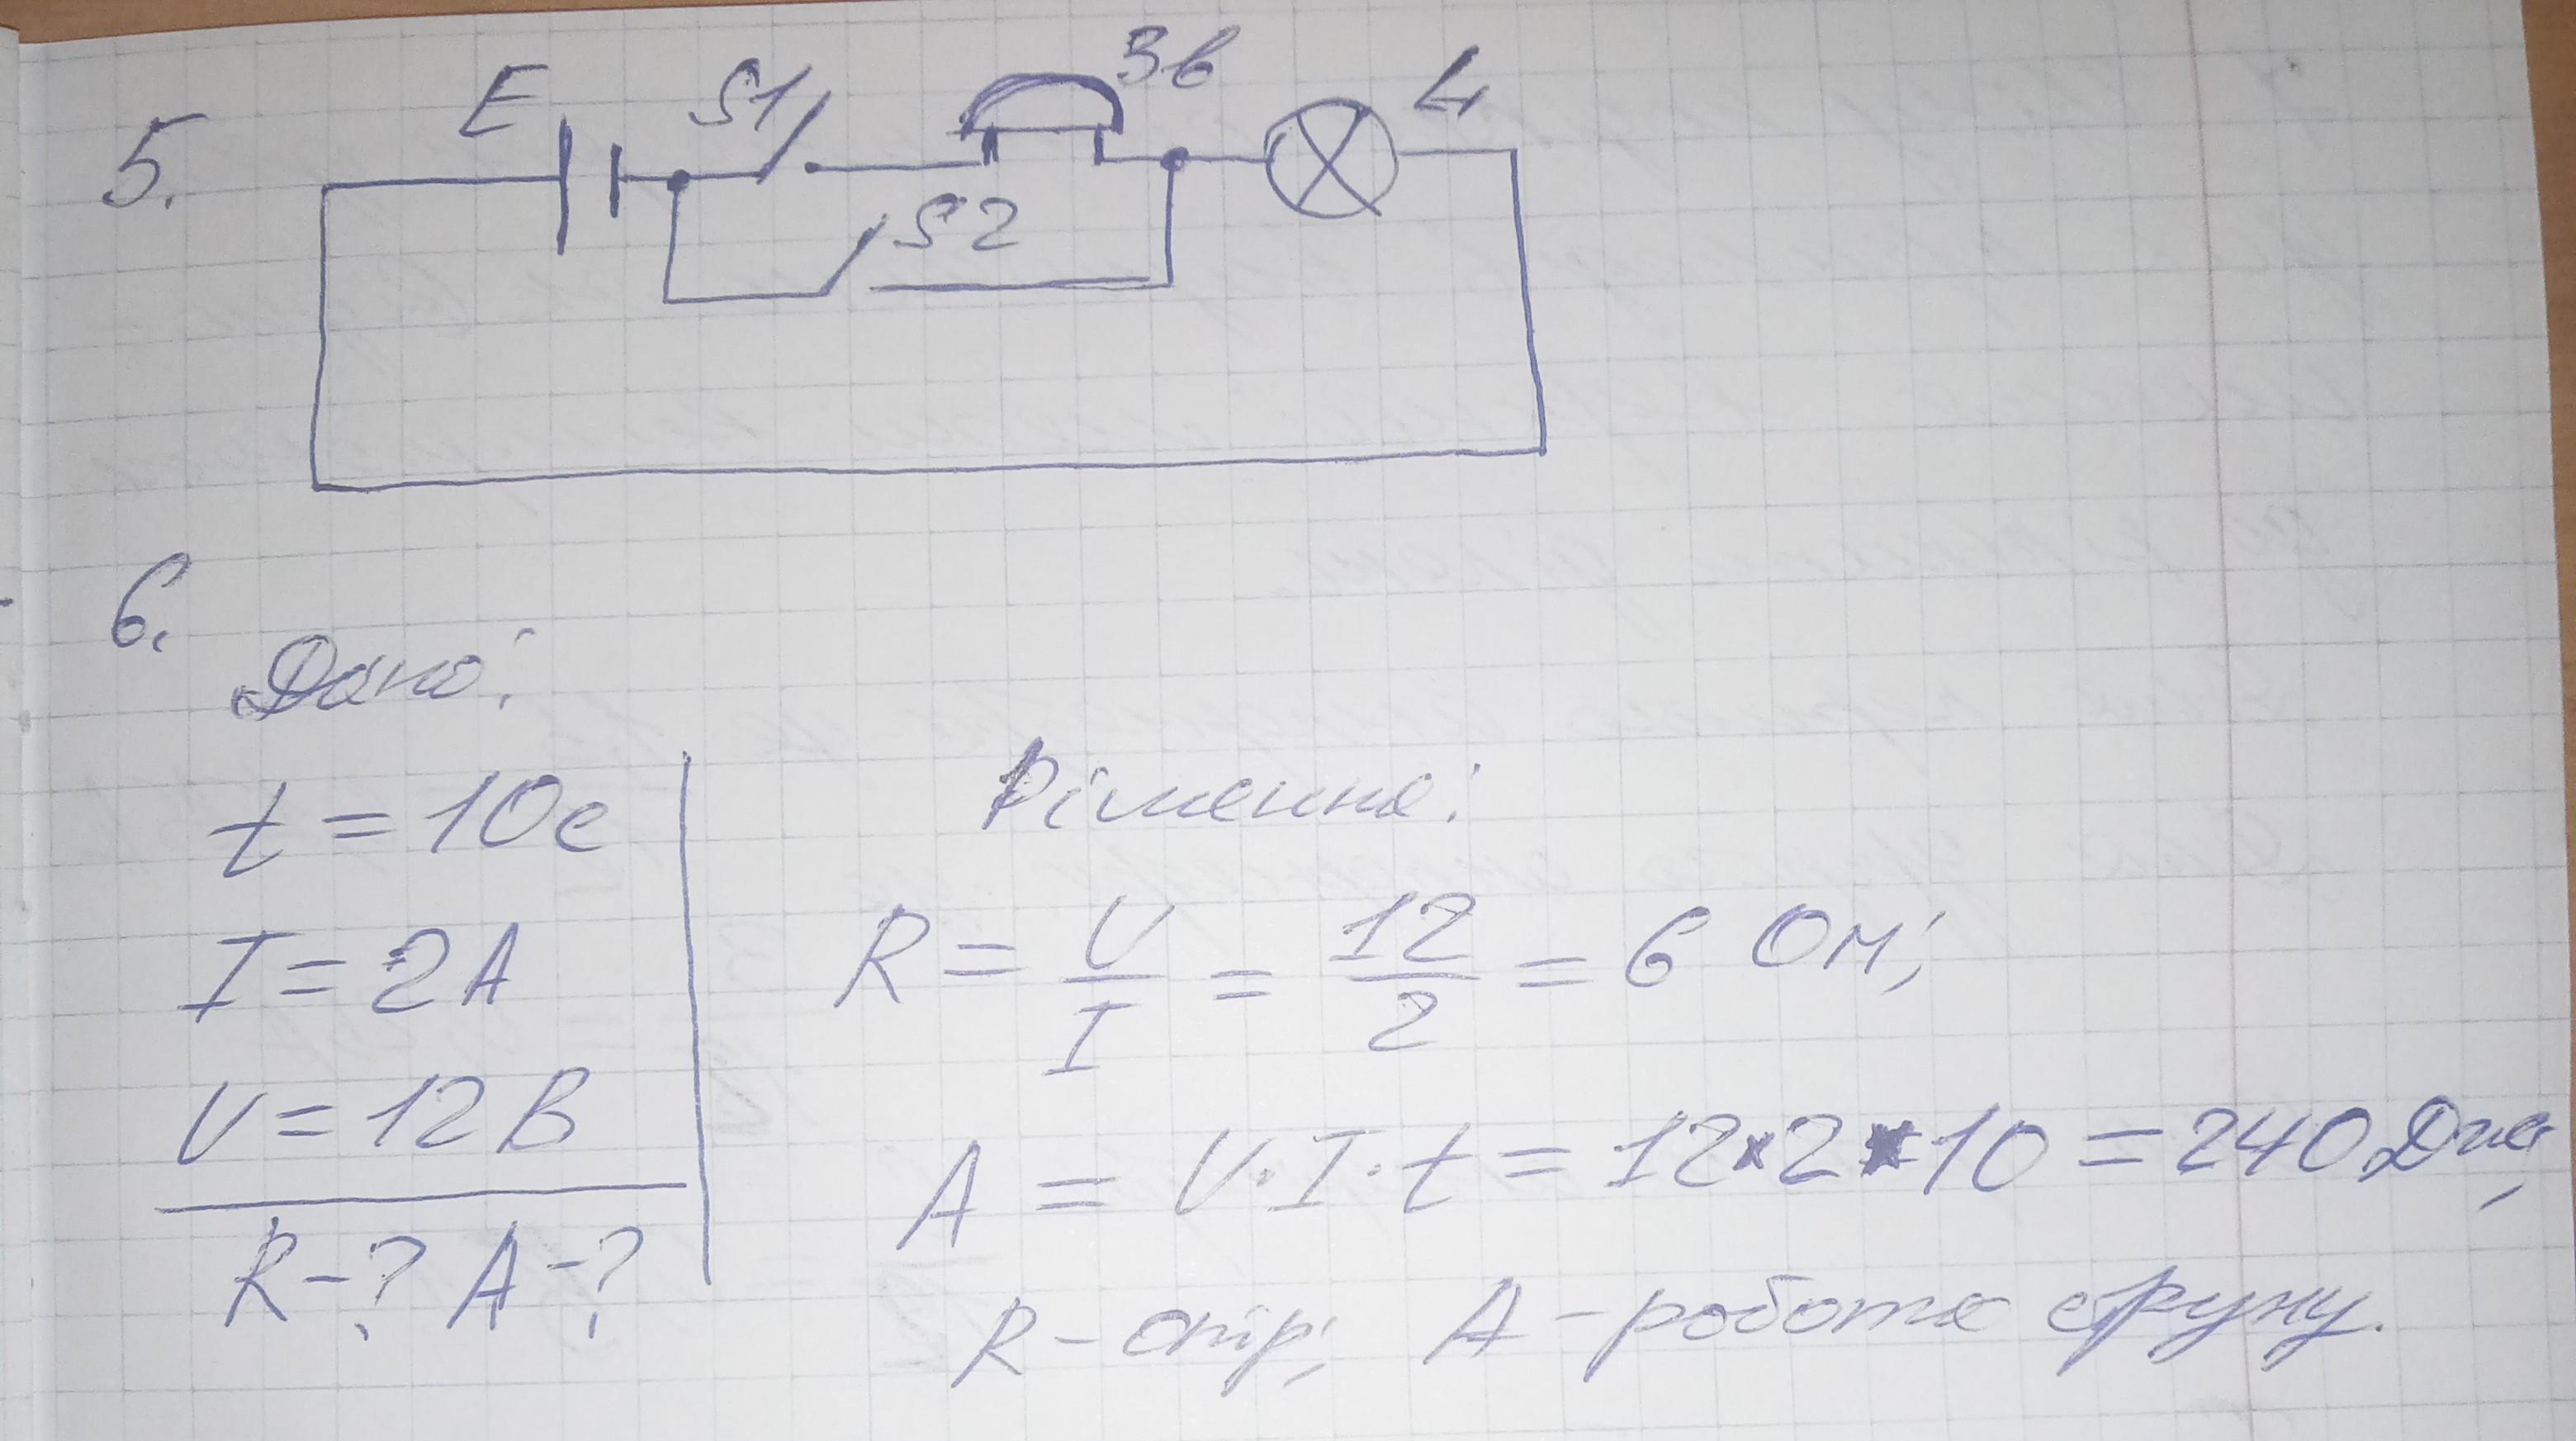 5.
E S1 Зв L1
S2
6.
Дано:
t = 10с
I = 2А
U = 12В
R-? A-?
Рішення:
R = U/I = 12/2 = 6 Ом;
A = U·I·t = 12×2×10 = 240Дж,
R - опір; A - робота струму.